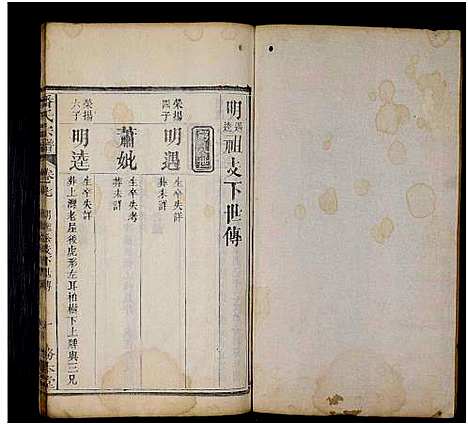 明遇逵祖支下世傳
榮揚四子
明遇
生卒失詳
葬未詳
蕭妣
生卒失考
葬未詳
榮揚六子
明逵
生卒失詳
葬上灣老屋後虎形左耳柏樹下上與三兄
氏宗譜
卷